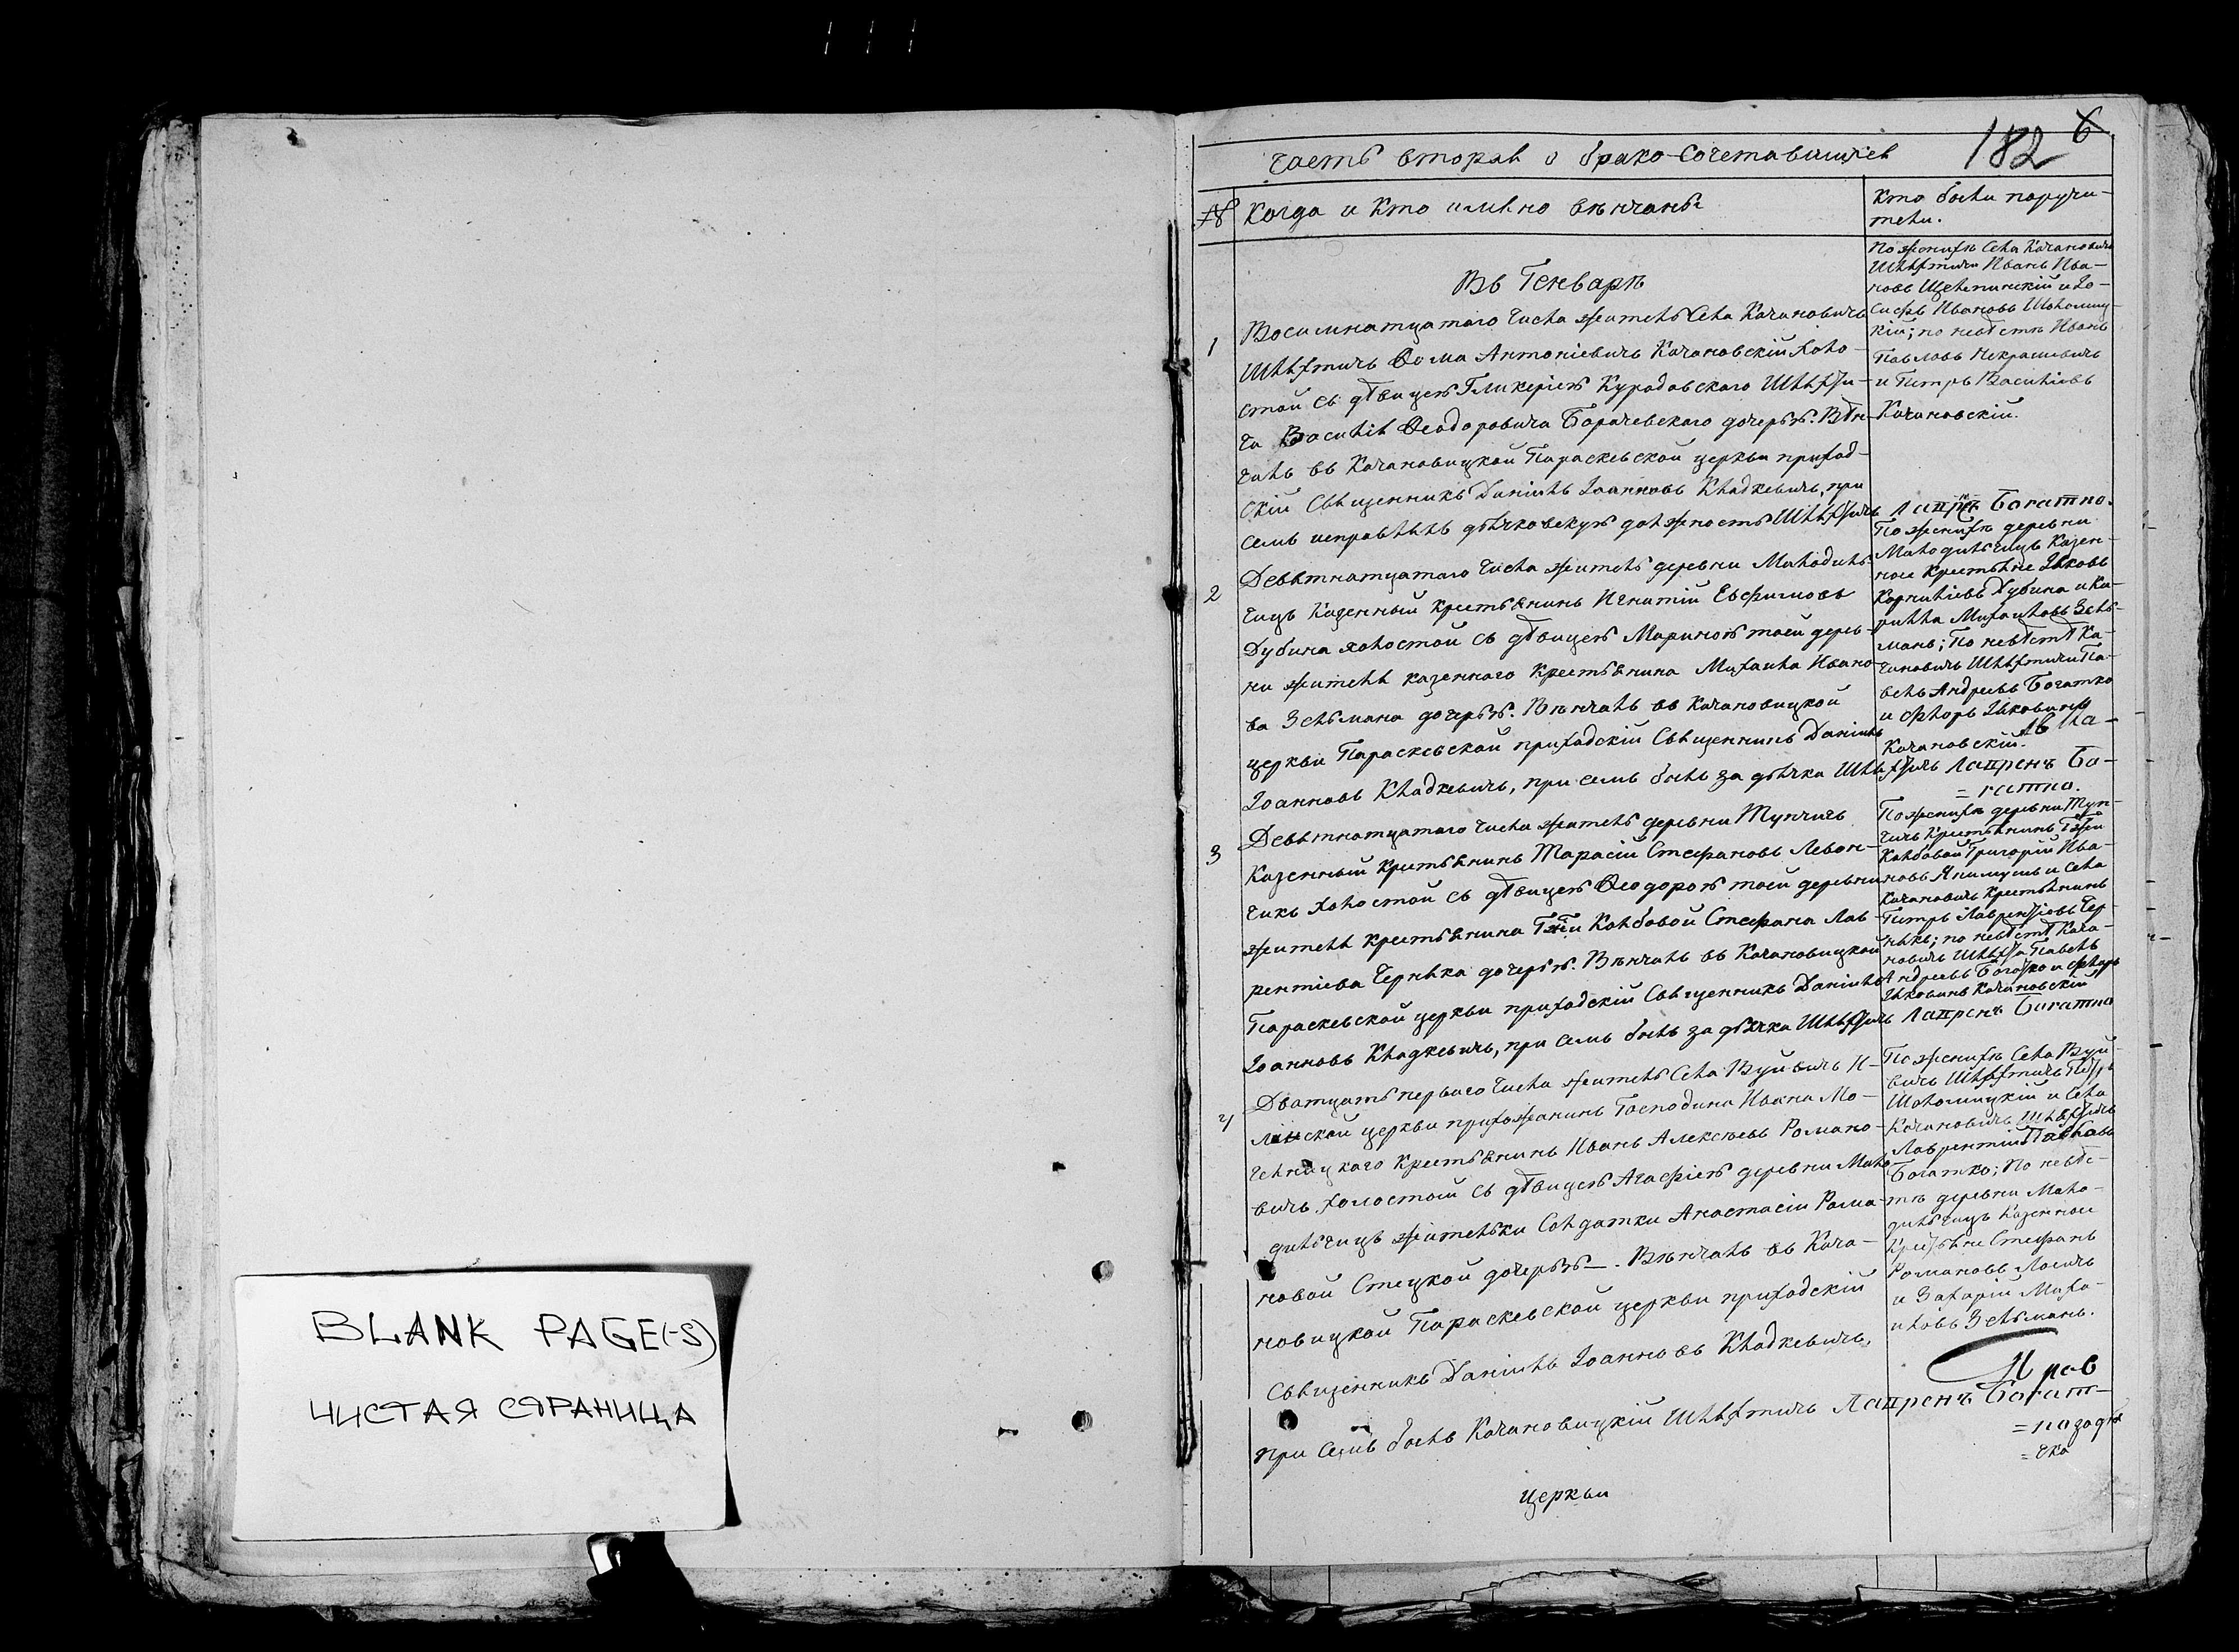 BLANK PAGE(-S)
ЧИСТАЯ СТРАНИЦА
182 6
Часть вторая о брако-сочетавшихся
№ Когда и кто имено вѣнчаны
Кто были поручи-
тели.
Въ Генварѣ
1
Восимнатцатаго числа житель села Качановичъ
Шляхтичъ Ѳома Антоніевичъ Качановскій холо-
стой съ дѣвицею Гликеріею Курадовскаго Шляхти-
ча Василія Ѳеодоровича Борачевскаго дочерью. Вѣн-
чалъ въ Качановицкой Параскевской церкви приход-
скій Священникъ Даніилъ Іоанновъ Кладкевичъ, при
семъ исправлялъ дьячковскую должность Шляхтичъ Лапренъ Богатко.
По женихѣ села Качановичъ
Шляхтичи Иванъ Ива-
новъ Щепинскій и Іо-
сифъ Ивановъ Шоломиц-
кій; по невѣстѣ Иванъ
Павловъ Некрашевичъ
и Петръ Васильевъ
Качановскій.
2
Девятнатцатаго числа житель деревни Малодиль-
чицъ казенный крестьянинъ Игнатій Евфимовъ
Дубина холостой съ дѣвицею Мариною тоей дерев-
ни жителя казеннаго крестьянина Михаила Ивано-
ва Зельмана дочерью. Вѣнчалъ въ Качановицкой
церкви Параскевской приходскій Священникъ Даніилъ
Іоанновъ Кладкевичъ, при семъ былъ за дьячка Шляхтичъ Лапренъ Бо-
=гатко.
По женихѣ деревни
Малодильчицъ казен-
ные крестьяне Яковъ
Корниліевъ Дубина и Ки-
рилла Михаиловъ Зель-
манъ; По невѣстѣ Ка-
чановичъ Шляхтичи Па-
велъ Андреевъ Богатко
и Флоръ Яковинъ
Качановскій.
3
Девятнатцатаго числа житель деревни Тупчичъ
казенный критьянинъ Тарасій Стефановъ Левон-
чикъ холостой съ дѣвицею Ѳеодорою тоей деревни
жителя крестьянина Гжи Колбовой Стефана Лав-
рентіева Черняка дочерью. Вѣнчалъ въ Качановицкой
Параскевской церкви приходскій Священникъ Даніилъ
Іоанновъ Кладкевичъ, при семъ былъ за дьячка Шляхтичъ Лапренъ Богатко
По женихѣ деревни Туп-
чичъ крестьянинъ Гжи
Колбовой Григорій Ива-
новъ Япимушъ и села
Качановичъ крестьянинъ
Петръ Лаврентіевъ Чер-
някъ; по невѣстѣ Кача-
новичъ Шляхти Павелъ
Андреевъ Богатко и Флоръ
Яковинъ Качановскій
4
Дватцать перваго числа житель села Вуйвичъ И-
линской церкви прихожанинъ Господина Ивана Мо-
гельницкаго крестьянинъ Иванъ Алексѣевъ Романо-
вичъ холостой съ дѣвицею Агафіею деревни Мало-
дильчицъ жительки солдатки Анастасіи Рома-
новой Стецкой дочерью. Вѣнчалъ въ Кача-
новицкой Параскевской церкви приходскій
Священникъ Даніилъ Іоанновъ Кладкевичъ,
при семъ былъ Качановицкій Шляхтичъ Лапренъ Богат-
=ко за дья
=чка
По женихѣ села Вуй-
вичъ Шляхтичъ Петръ
Шоломицкій и села
Качановичъ Шляхтичъ
Лаврентій Павловъ
Богатко; По невѣс-
тѣ деревни Мало-
дильчицъ казенные
крестьяне Стефанъ
Романовъ Лосичъ
и Захарій Миха-
иловъ Зельманъ.
церкви